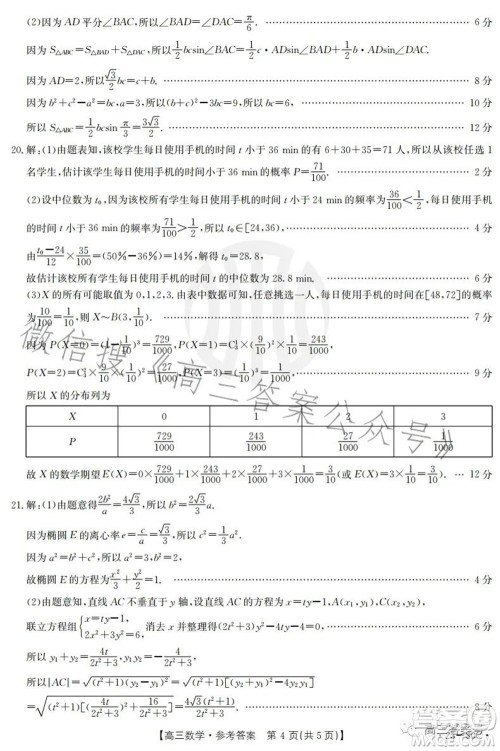 (2)因为 AD 平分∠BAC,所以∠BAD=∠DAC=π/6. 6 分
因为 S△ABC=S△BAD+S△DAC,所以 1/2 bcsin∠BAC=1/2 c·ADsin∠BAD+1/2 b·ADsin∠DAC.
因为 AD=2,所以 √3/2 bc=c+b. 8 分
因为 b²+c²-a²=bc,a=3,所以(b+c)²-3bc=9,所以 bc=6, 10 分
所以 S△ABC=1/2 bcsin π/3=3√3/2. 12 分
20. 解:(1)由题表知,该校学生每日使用手机的时间 t 小于 36 min 的有 6+30+35=71 人,所以从该校任选 1
名学生,估计该学生每日使用手机的时间小于 36 min 的概率 P=71/100. 2 分
(2)设中位数为 t₀,因为该校所有学生每日使用手机的时间 t 小于 24 min 的频率为 36/100<1/2,每日使用手机
的时间 t 小于 36 min 的频率为 71/100>1/2,所以 t₀∈[24,36), 4 分
由 (t₀-24)/12×35/100=(50%-36%)=14%,解得 t₀=28.8,
故估计该校所有学生每日使用手机的时间 t 的中位数为 28.8 min. 6 分
(3)X 的所有可能取值为 0,1,2,3. 由表中数据可知,任意挑选一人,每日使用手机的时间在[48,72]的概率
为 10/100=1/10,则 X~B(3,1/10). 7 分
因为 P(X=0)=(1-1/10)³=729/1000,P(X=1)=C₃¹×(9/10)²×1/10=243/1000,
P(X=2)=C₃²×9/10×(1/10)²=27/1000,P(X=3)=(1/10)³=1/1000, 9 分
所以 X 的分布列为
X 0 1 2 3
P 729/1000 243/1000 27/1000 1/1000
故 X 的数学期望 E(X)=0×729/1000+1×243/1000+2×27/1000+3×1/1000=3/10(或 E(X)=3×1/10=3/10). 12 分
21. 解:(1)由题意得 2b²/a=4√3/3,所以 b²=2√3/3 a.
因为椭圆 E 的离心率 e=c/a=√3/3,所以 c²=1/3 a².
因为 a²=b²+c²,所以 a²=3,b²=2,
故椭圆 E 的方程为 x²/3+y²/2=1. 4 分
(2)由题意知,直线 AC 不垂直于 y 轴,设直线 AC 的方程为 x=ty-1,A(x₁,y₁),C(x₂,y₂),
联立方程组{x=ty-1, 2x²+3y²=6, 消去 x 并整理得(2t²+3)y²-4ty-4=0, 6 分
所以 y₁+y₂=4t/(2t²+3),y₁y₂=-4/(2t²+3),
所以|AC|=√((t²+1)(y₂-y₁)²)=√((t²+1)[(y₂+y₁)²-4y₂y₁]) 8 分
=√((t²+1)[(4t/(2t²+3))²+16/(2t²+3)])=4√3(t²+1)/(2t²+3).
【高三数学·参考答案 第 4 页(共 5 页)】
微信搜《高三答案公众号》